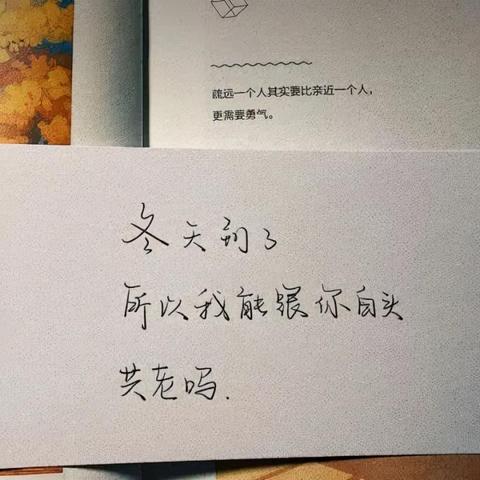 疏远一个人其实要比亲近一个人，
更需要勇气。
冬天到了
所以我能跟你白头
共老吗.